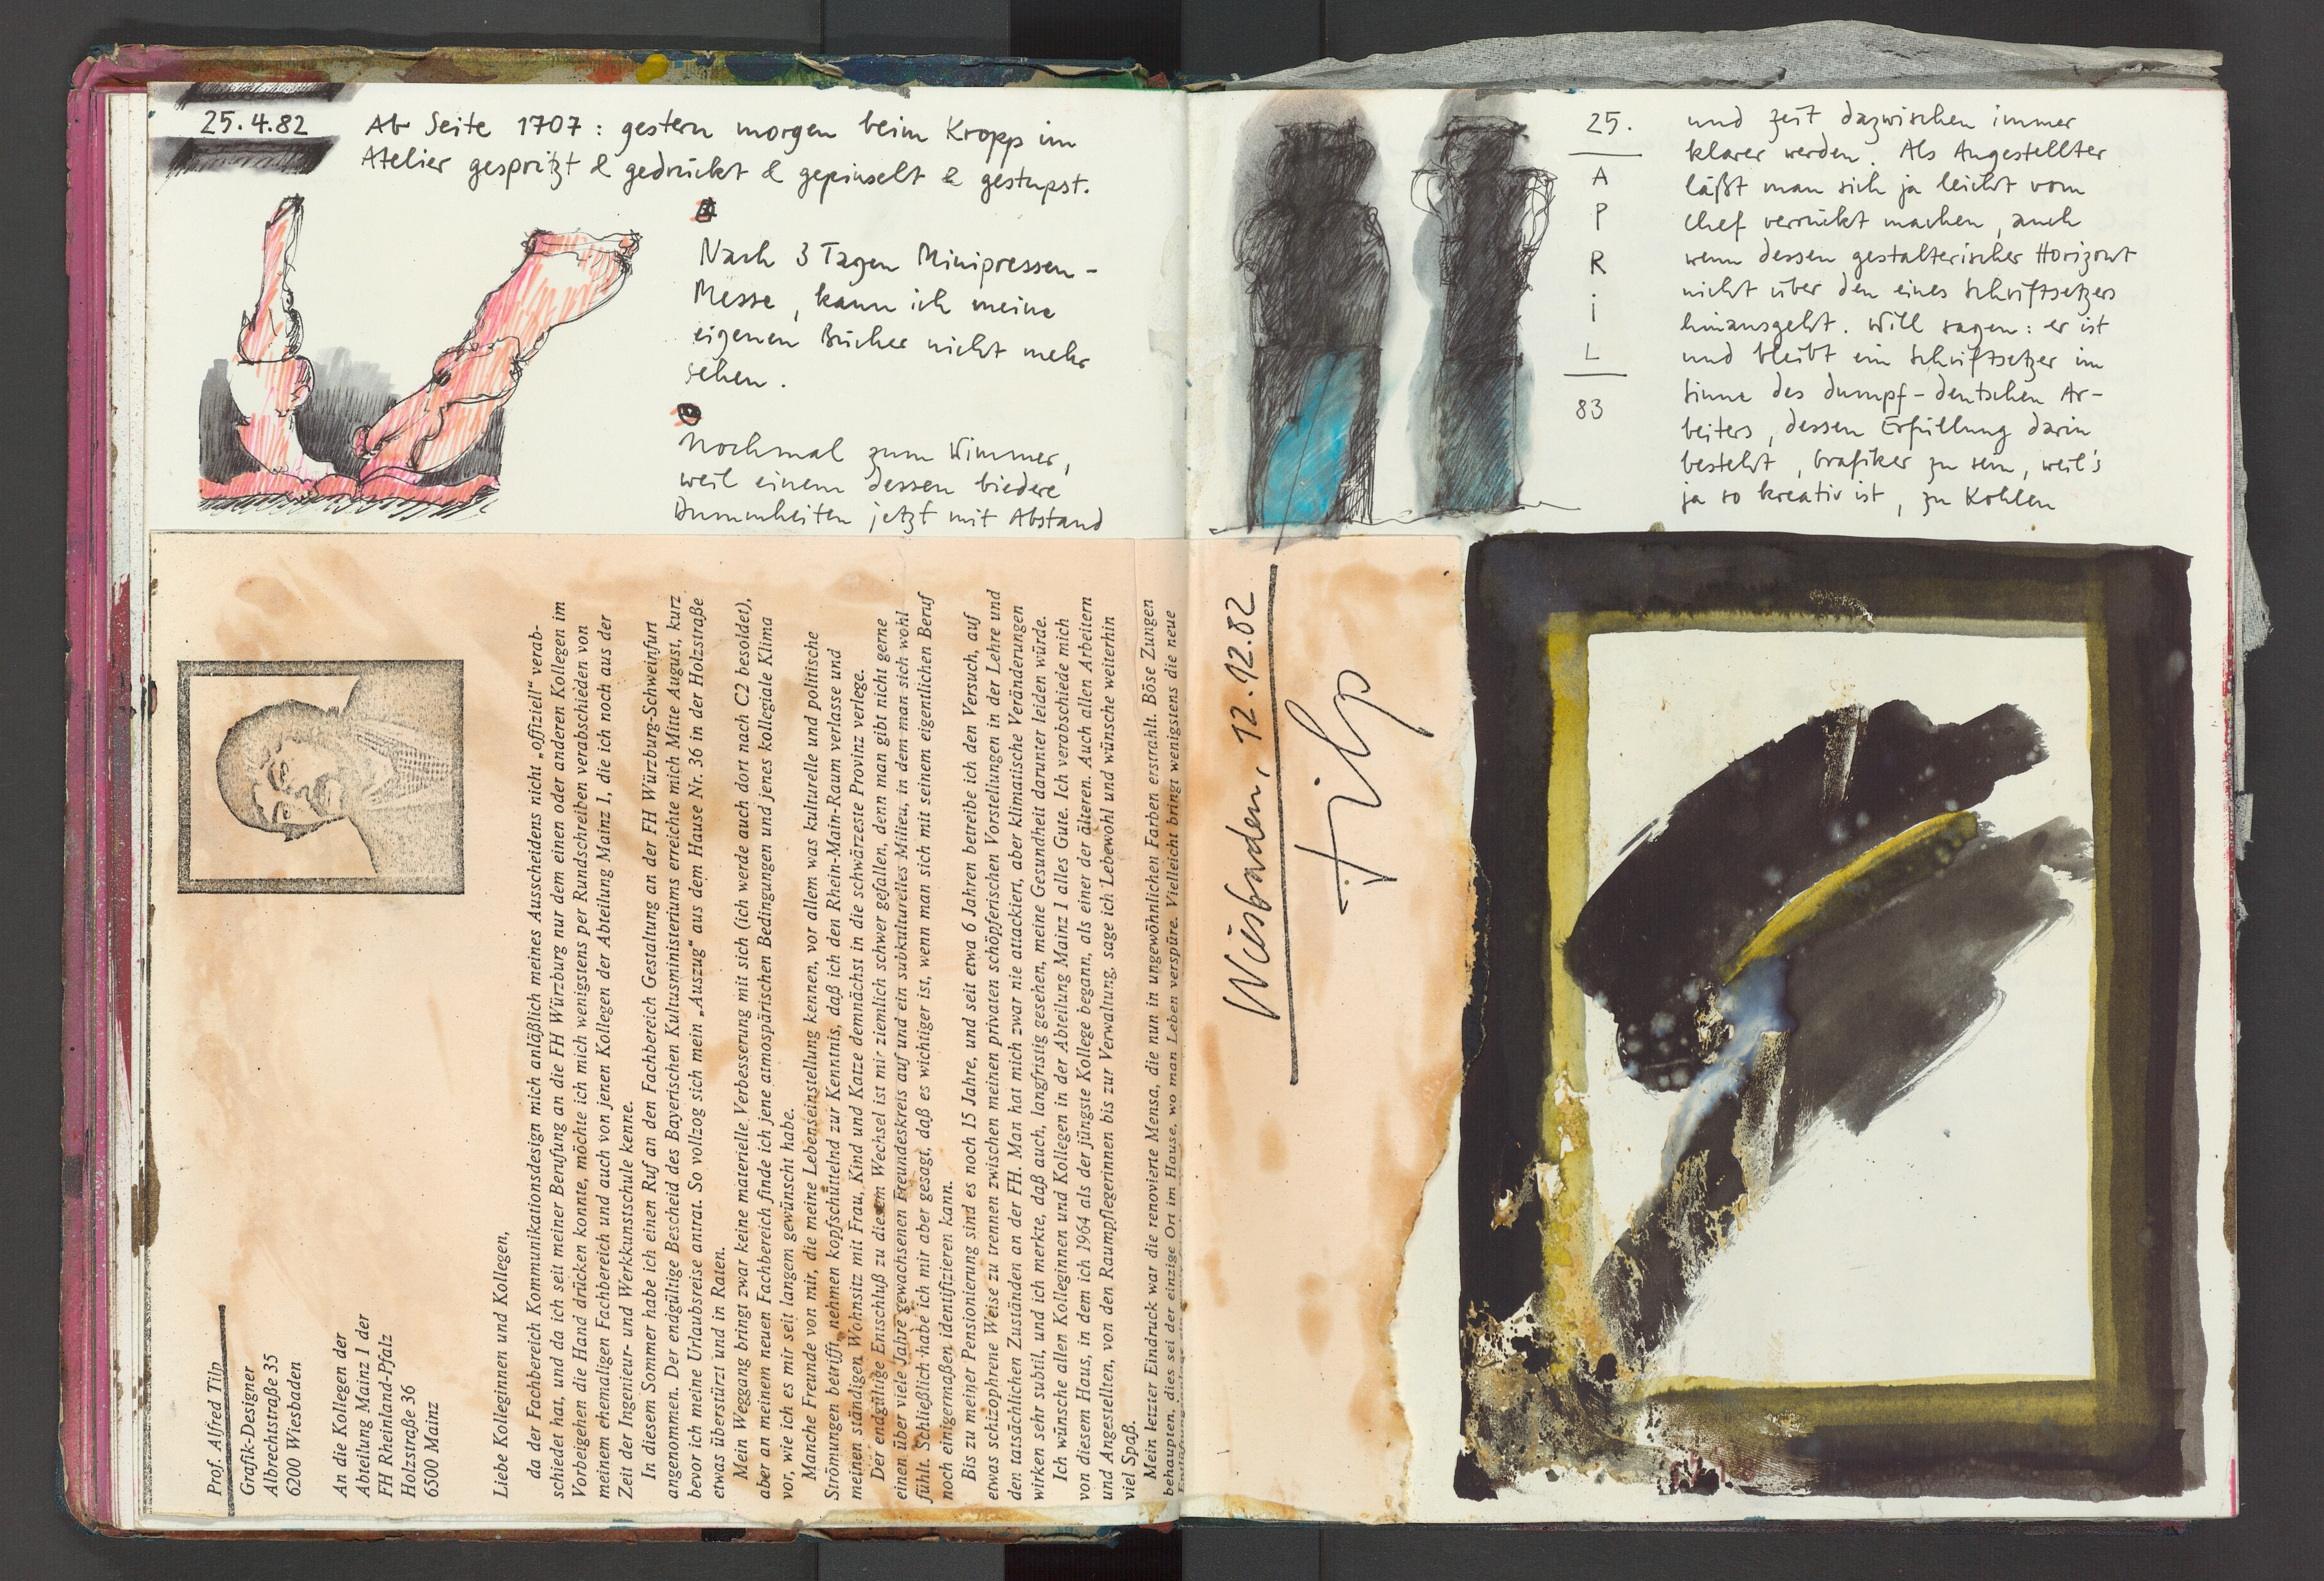 25.4.82
Ab Seite 1707: gestern morgen beim Kropp im
Atelier gespritzt & gedrückt & gepinselt & gestupst.
Nach 3 Tagen Minipressen-
Messe, kann ich meine
eigenen Bücher nicht mehr
sehen.
Nochmal zum Wimmer,
weil einem dessen biedere
Dummheiten jetzt mit Abstand
25.
A
P
R
i
L
83
und zeit dazwischen immer
klarer werden. Als Angestellter
läßt man sich ja leicht vom
Chef verrückt machen, auch
wenn dessen gestalterischer Horizont
nicht über den eines Schriftsetzers
hinausgeht. Will sagen: er ist
und bleibt ein Schriftsetzer im
Sinne des dumpf-deutschen Ar-
beiters, dessen Erfüllung darin
besteht, Grafiker zu sein, weil's
ja so kreativ ist, zu Kohlen
Prof. Alfred Tilp
Grafik-Designer
Albrechtstraße 35
6200 Wiesbaden
An die Kollegen der
Abteilung Mainz I der
FH Rheinland-Pfalz
Holzstraße 36
6500 Mainz
Liebe Kolleginnen und Kollegen,
da der Fachbereich Kommunikationsdesign mich anläßlich meines Ausscheidens nicht „offiziell“ verab-
schiedet hat, und da ich seit meiner Berufung an die FH Würzburg nur dem einen oder anderen Kollegen im
Vorbeigehen die Hand drücken konnte, möchte ich mich wenigstens per Rundschreiben verabschieden von
meinem ehemaligen Fachbereich und auch von jenen Kollegen der Abteilung Mainz I, die ich noch aus der
Zeit der Ingenieur- und Werkkunstschule kenne.
In diesem Sommer habe ich einen Ruf an den Fachbereich Gestaltung an der FH Würzburg-Schweinfurt
angenommen. Der endgültige Bescheid des Bayerischen Kultusministeriums erreichte mich Mitte August, kurz
bevor ich meine Urlaubsreise antrat. So vollzog sich mein „Auszug“ aus dem Hause Nr. 36 in der Holzstraße
etwas überstürzt und in Raten.
Mein Weggang bringt zwar keine materielle Verbesserung mit sich (ich werde auch dort nach C2 besoldet),
aber an meinem neuen Fachbereich finde ich jene atmospärischen Bedingungen und jenes kollegiale Klima
vor, wie ich es mir seit langem gewünscht habe.
Manche Freunde von mir, die meine Lebenseinstellung kennen, vor allem was kulturelle und politische
Strömungen betrifft, nehmen kopfschüttelnd zur Kenntnis, daß ich den Rhein-Main-Raum verlasse und
meinen ständigen Wohnsitz mit Frau, Kind und Katze demnächst in die schwärzeste Provinz verlege.
Der endgültige Entschluß zu diesem Wechsel ist mir ziemlich schwer gefallen, denn man gibt nicht gerne
einen über viele Jahre gewachsenen Freundeskreis auf und ein subkulturelles Milieu, in dem man sich wohl
fühlt. Schließlich habe ich mir aber gesagt, daß es wichtiger ist, wenn man sich mit seinem eigentlichen Beruf
noch einigermaßen identifizieren kann.
Bis zu meiner Pensionierung sind es noch 15 Jahre, und seit etwa 6 Jahren betreibe ich den Versuch, auf
etwas schizophrene Weise zu trennen zwischen meinen privaten schöpferischen Vorstellungen in der Lehre und
den tatsächlichen Zuständen an der FH. Man hat mich zwar nie attackiert, aber klimatische Veränderungen
wirken sehr subtil, und ich merkte, daß auch, langfristig gesehen, meine Gesundheit darunter leiden würde.
Ich wünsche allen Kolleginnen und Kollegen in der Abteilung Mainz I alles Gute. Ich verobschiede mich
von diesem Haus, in dem ich 1964 als der jüngste Kollege begann, als einer der älteren. Auch allen Arbeitern
und Angestellten, von den Raumpflegerinnen bis zur Verwaltung, sage ich Lebewohl und wünsche weiterhin
viel Spaß.
Mein letzter Eindruck war die renovierte Mensa, die nun in ungewöhnlichen Farben erstrahlt. Böse Zungen
behaupten, dies sei der einzige Ort im Hause, wo man Leben verspüre. Vielleicht bringt wenigstens die neue
Wiesbaden, 12.12.82
Tilp